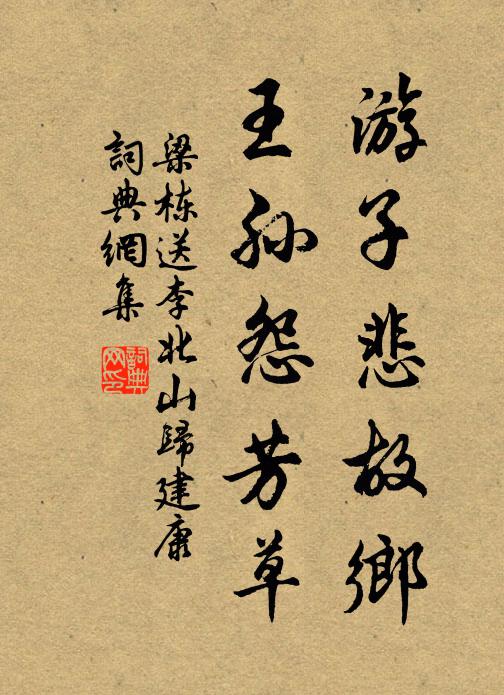 游子悲故鄉
王孙怨芳草
梁栋送李北山歸建康
詞典網集
詞典网印